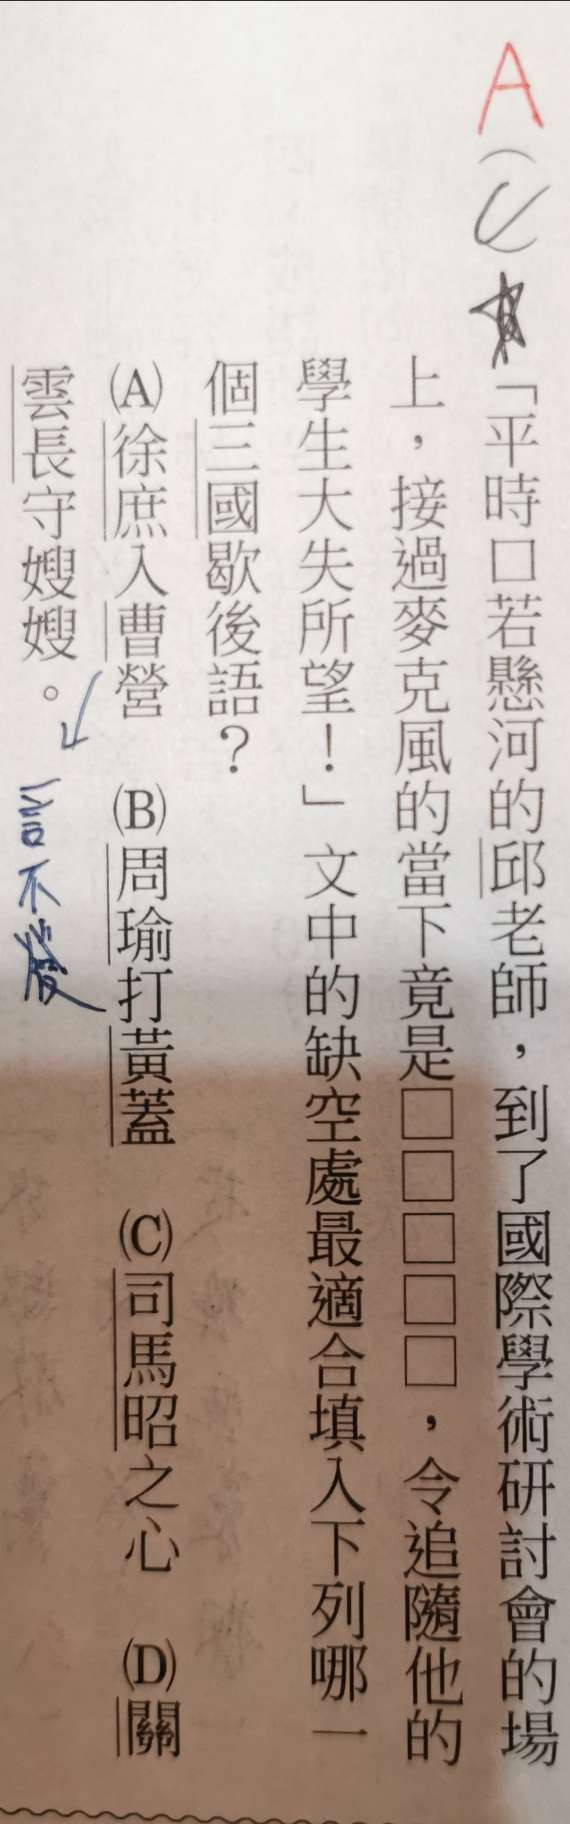 A
（C）
「平時口若懸河的邱老師，到了國際學術研討會的場
上，接過麥克風的當下竟是□□□□□，令追隨他的
學生大失所望！」文中的缺空處最適合填入下列哪一
個三國歇後語？
(A)徐庶入曹營　(B)周瑜打黃蓋　(C)司馬昭之心　(D)關
雲長守嫂嫂。
一言不發